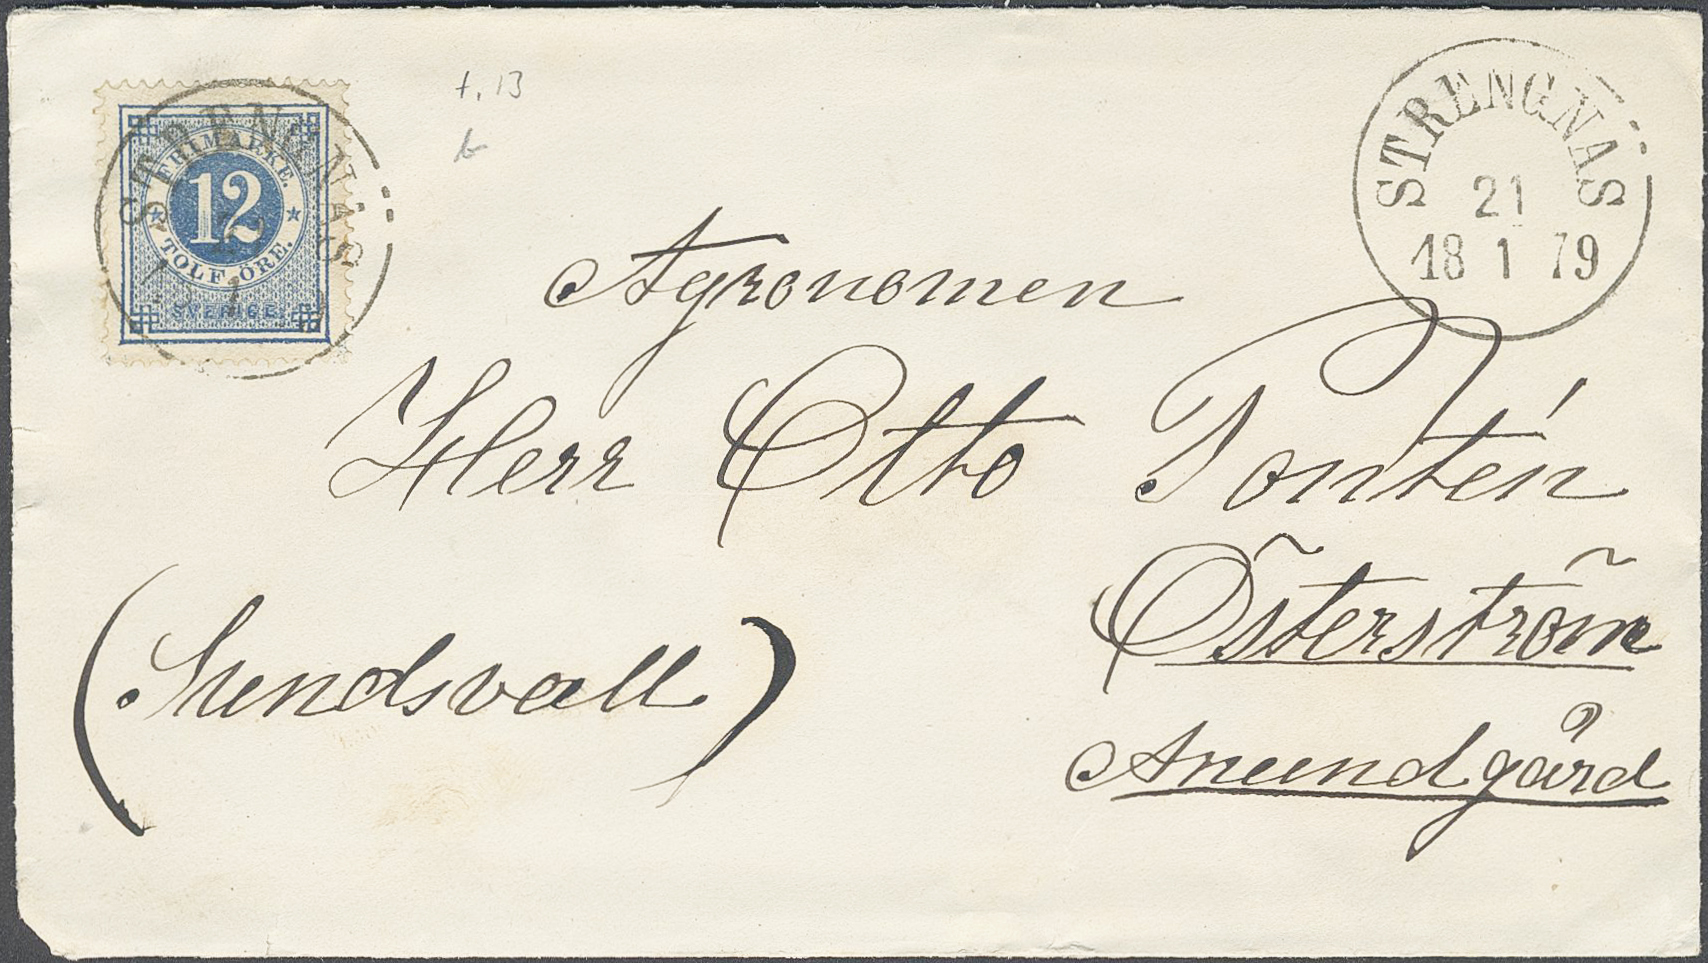 t. 13
STRENGNÄS
21
18 1 79
FRIMÄRKE.
12
TOLF ÖRE.
SVERIGE.
STRENGNÄS
Agronomen
Herr Otto Pontén
Österström
Anundgård
(Sundsvall)